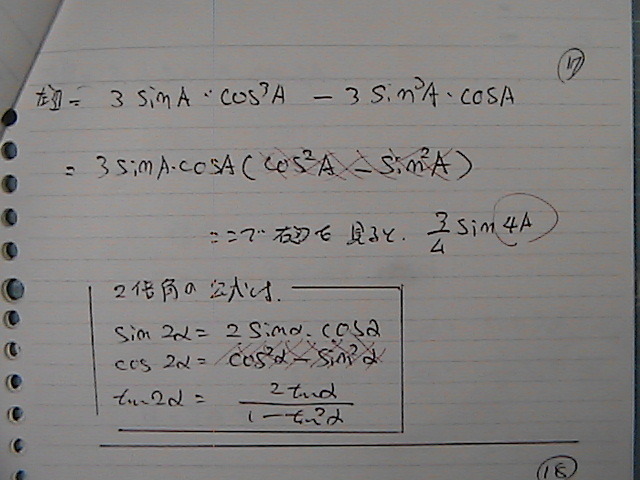 ⑰
左辺 = 3 sinA・cos³A − 3 sin³A・cosA
= 3 sinA・cosA (cos²A − sin²A)
ここで 右辺を 見ると、 3/4 sin 4A
2倍角の公式は、
sin 2α = 2 sinα・cosα
cos 2α = cos²α − sin²α
tan 2α = 2 tanα / 1 − tan²α
⑱